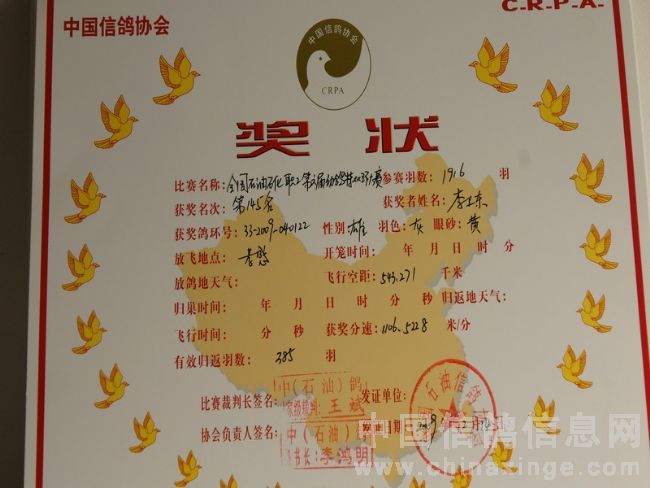 中国信鸽协会
C-R-P-A-
中国信鸽协会
CRPA
奖 状
比赛名称: 全国石油石化职工第 参赛羽数: 1916 羽
获奖名次: 第145名 获奖者姓名:
获奖鸽环号: 33-2009-040122 性别 雄 羽色: 灰 眼砂: 黄
放飞地点: 开笼时间: 年 月 日 时 分
放鸽地天气: 飞行空距: 543.271 千米
归巢时间: 年 月 日 时 分 秒 归返地天气:
飞行时间: 分 秒 获奖分速: 1106.5228 米/分
有效归返羽数: 385 羽
比赛裁判长签名: 中(石油)鸽 王斌 发证单位: 石油信鸽
协会负责人签名: 中(石油) 书长: 李鸿明 发证日期:
中国信鸽信息网
www.chinaxinge.com